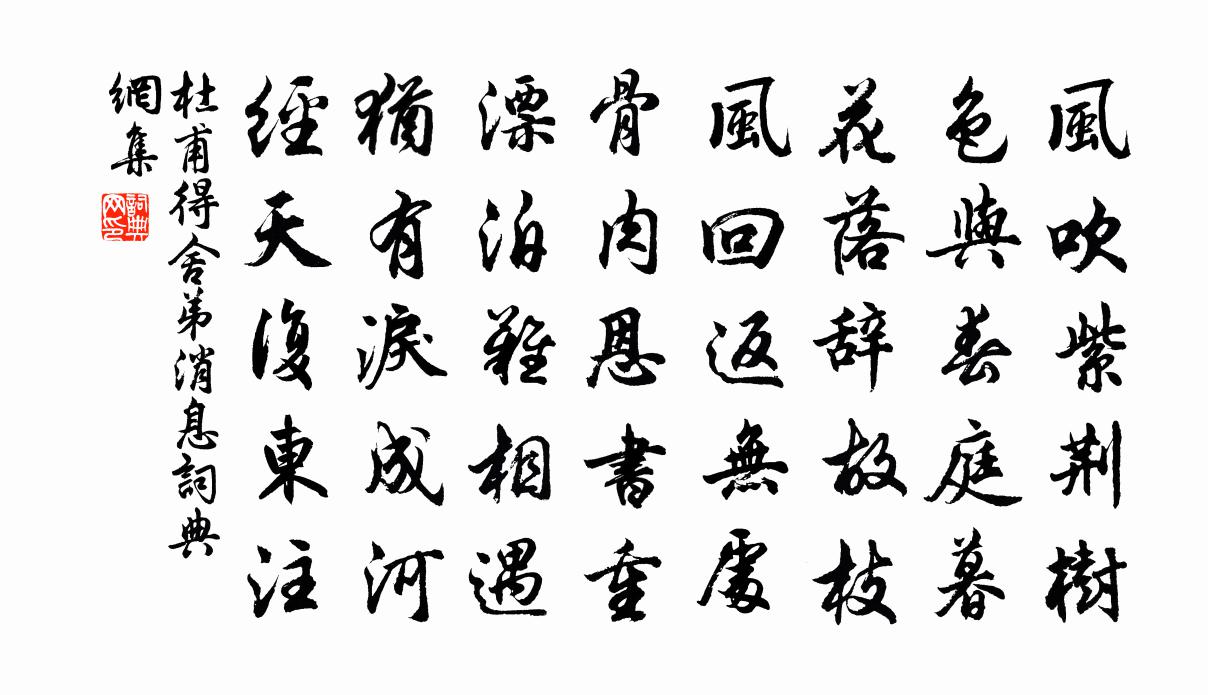 風吹紫荆樹
色與春庭暮
花落辞故枝
風回返無處
骨肉恩書重
漂泊難相遇
猶有淚成河
經天復東注
杜甫得舍弟消息詞典
網集
詞典
网印